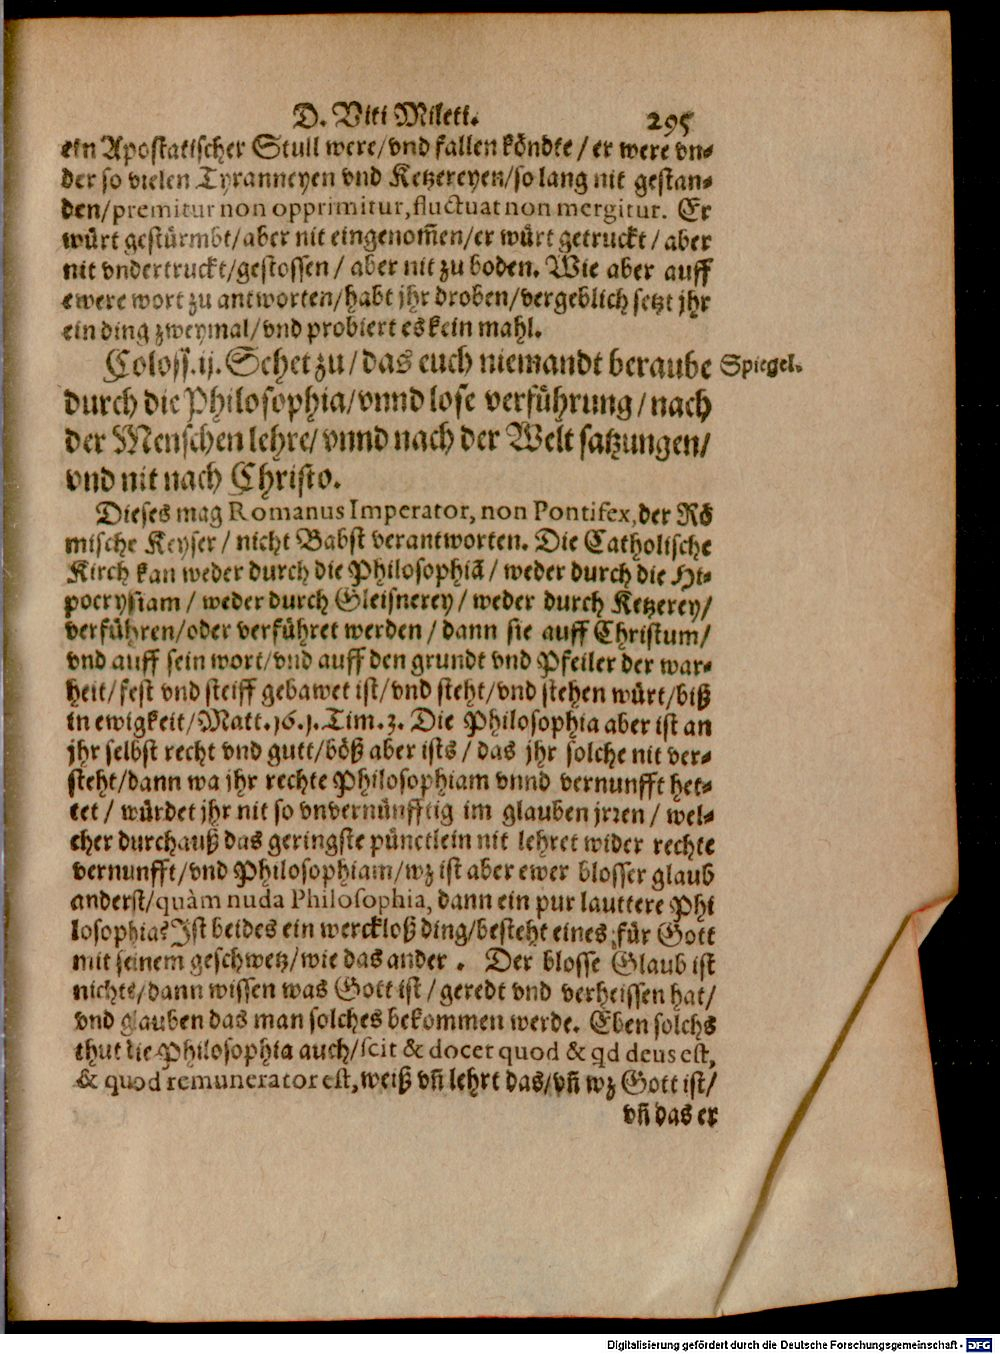 D. Viti Mileti.
295
ein Apostatischer Stull were/vnd fallen köndte/er were vn-
der so vielen Tyranneyen vnd Ketzereyen/so lang nit gestan-
den/premitur non opprimitur, fluctuat non mergitur. Er
würt gestürmbt/aber nit eingenom̃en/er würt getruckt/aber
nit vndertruckt/gestossen/aber nit zu boden. Wie aber auff
ewere wort zu antworten/habt jhr droben/vergeblich setzt jhr
ein ding zweymal/vnd probiert es kein mahl.
Coloss.ij. Sehet zu/das euch niemandt beraube
Spiegel.
durch die Philosophia/vnnd lose verführung/nach
der Menschen lehre/vnnd nach der Welt satzungen/
vnd nit nach Christo.
Dieses mag Romanus Imperator, non Pontifex, der Rö
mische Keyser/nicht Babst verantworten. Die Catholische
Kirch kan weder durch die Philosophiã/weder durch die Hi-
pocrysiam/weder durch Gleisnerey/weder durch Ketzerey/
verführen/oder verführet werden/dann sie auff Christum/
vnd auff sein wort/vnd auff den grundt vnd Pfeiler der war-
heit/fest vnd steiff gebawet ist/vnd steht/vnd stehen würt/biß
in ewigkeit/Matt.16.1.Tim.3. Die Philosophia aber ist an
jhr selbst recht vnd gutt/böß aber ists/das jhr solche nit ver-
steht/dann wa jhr rechte Philosophiam vnnd vernunfft het-
tet/würdet jhr nit so vnvernünfftig im glauben jrren/wel-
cher durchauß das geringste pünctlein nit lehret wider rechte
vernunfft/vnd Philosophiam/wz ist aber ewer blosser glaub
anderst/quàm nuda Philosophia, dann ein pur lauttere Phi
losophia? Ist beides ein werckloß ding/besteht eines für Gott
mit seinem geschwetz/wie das ander. Der blosse Glaub ist
nichts/dann wissen was Gott ist/geredt vnd verheissen hat/
vnd glauben das man solches bekommen werde. Eben solchs
thut die Philosophia auch/scit & docet quod & qd deus est,
& quod remunerator est, weiß vñ lehrt das/vñ wz Gott ist/
vñ das er
Digitalisierung gefördert durch die Deutsche Forschungsgemeinschaft - DFG